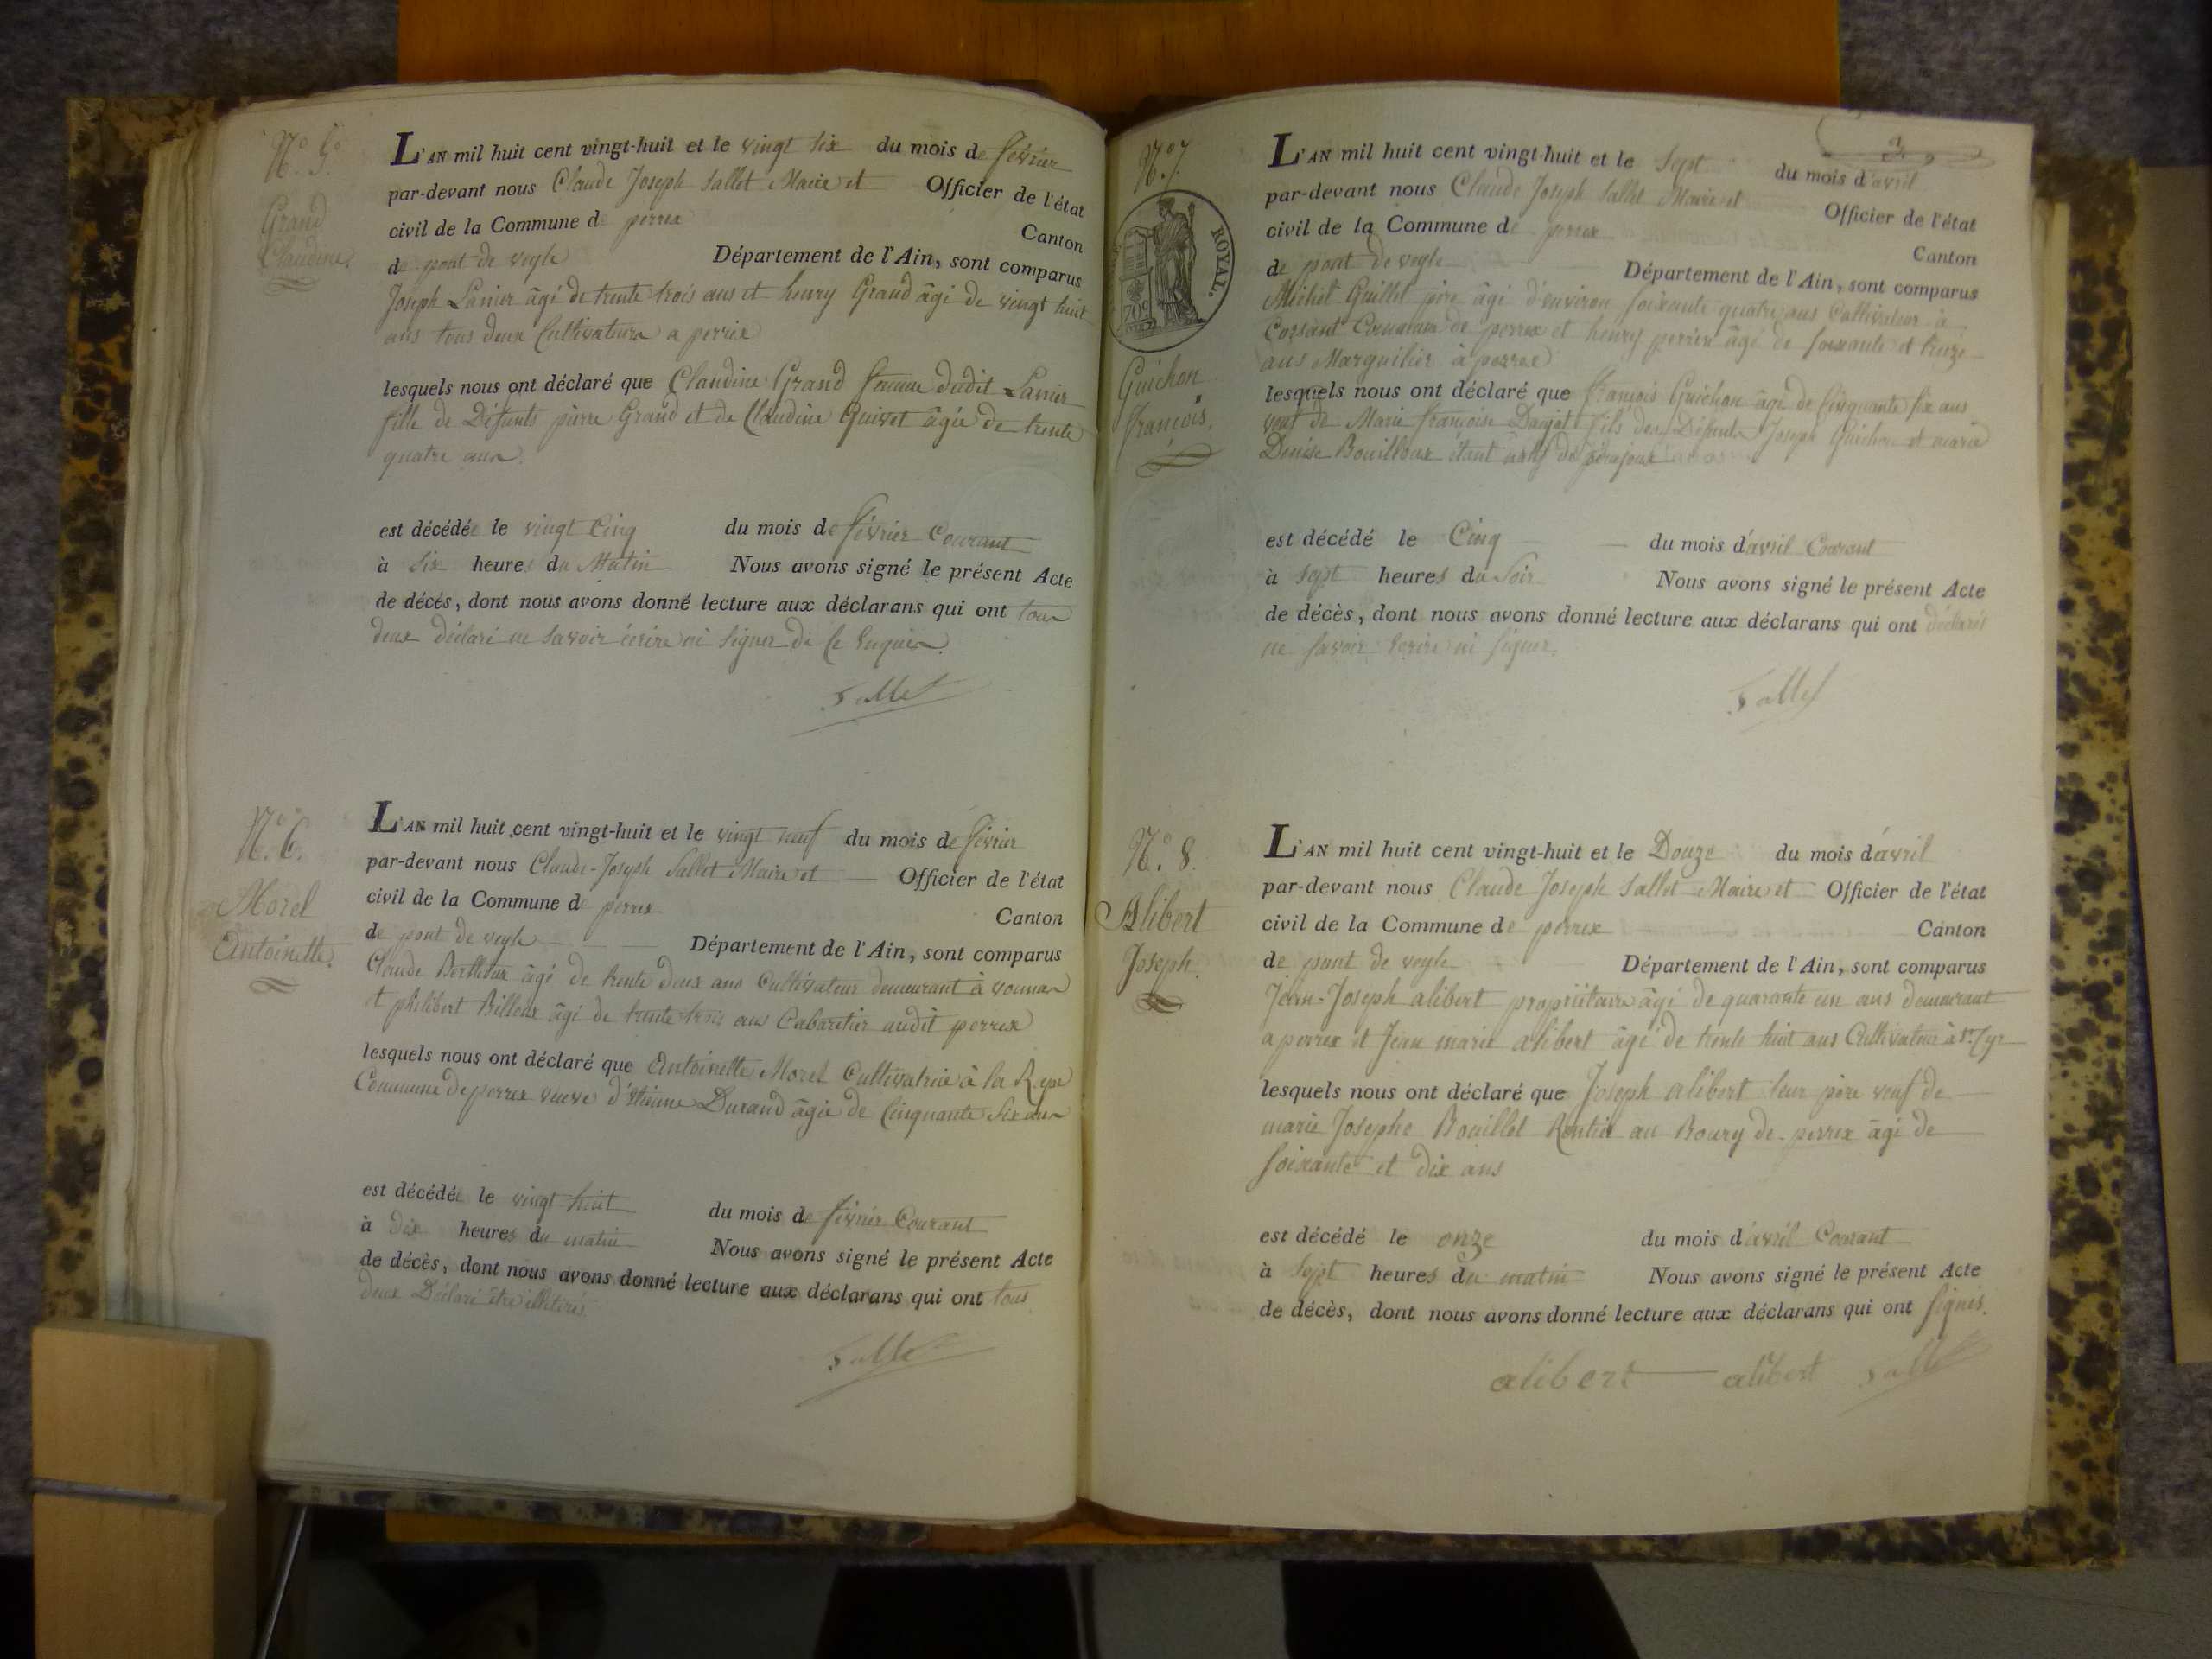 N.° 5.
Grand
Claudine.
L'AN mil huit cent vingt-huit et le vingt six du mois de février
par-devant nous Claude Joseph Sallet Maire et Officier de l'état
civil de la Commune de perrex Canton
de pont de veyle Département de l'Ain, sont comparus
Joseph Lanier âgé de trente trois ans et henry Grand âgé de vingt huit
ans tous deux Cultivateurs a perrex
lesquels nous ont déclaré que Claudine Grand femme dudit Lanier
fille de Défunts pierre Grand et de Claudine Guivet âgée de trente
quatre ans.
est décédée le vingt Cinq du mois de février Courant
à Six heures du Matin Nous avons signé le présent Acte
de décès, dont nous avons donné lecture aux déclarans qui ont tous
deux déclaré ne savoir écrire ni signer de Ce Enquis.
Sallet
N.° 6.
Morel
Antoinette.
L'AN mil huit cent vingt-huit et le vingt neuf du mois de février
par-devant nous Claude-Joseph Sallet Maire et Officier de l'état
civil de la Commune de perrex Canton
de pont de veyle Département de l'Ain, sont comparus
Claude Berthoux âgé de trente deux ans Cultivateur demeurant à vonnas
et philibert Billoux âgé de trente trois ans Cabaretier audit perrex
lesquels nous ont déclaré que Antoinette Morel Cultivatrice à la
Commune de perrex veuve d'Etienne Durand âgée de Cinquante Six ans
est décédée le vingt huit du mois de février Courant
à Dix heures du matin Nous avons signé le présent Acte
de décès, dont nous avons donné lecture aux déclarans qui ont tous
deux Déclaré être illétérés
Sallet
N.° 7.
ROYAL.
Guichon
François.
L'AN mil huit cent vingt-huit et le Sept du mois d'avril
par-devant nous Claude Joseph Sallet Maire et Officier de l'état
civil de la Commune de perrex Canton
de pont de veyle Département de l'Ain, sont comparus
Michel Guillet père âgé d'environ soixante quatre ans Cultivateur à
Corsant Commune de perrex et henry perrier âgé de soixante et treize
ans Marguilier à perrex
lesquels nous ont déclaré que françois Guichon âgé de Cinquante six ans
veuf de Marie françoise Daigat fils des Défunts Joseph Guichon et marie
Denise Bouilloux étant natif de
est décédé le Cinq du mois d'avril Courant
à sept heures du Soir Nous avons signé le présent Acte
de décès, dont nous avons donné lecture aux déclarans qui ont déclaré
ne savoir Ecrire ni signer.
Sallet
N.° 8.
Alibert
Joseph.
L'AN mil huit cent vingt-huit et le Douze du mois d'avril
par-devant nous Claude Joseph Sallet Maire et Officier de l'état
civil de la Commune de perrex Canton
de pont de veyle Département de l'Ain, sont comparus
Jean-Joseph alibert propriétaire âgé de quarante un ans demeurant
a perrex et Jean marie alibert âgé de trente huit ans Cultivateur à St. Cyr
lesquels nous ont déclaré que Joseph alibert leur père veuf de
marie Josephe Bouillet Rentier au Bourg de perrex âgé de
soixante et dix ans
est décédé le onze du mois d'avril Courant
à Sept heures du matin Nous avons signé le présent Acte
de décès, dont nous avons donné lecture aux déclarans qui ont signés.
alibert alibert Sallet